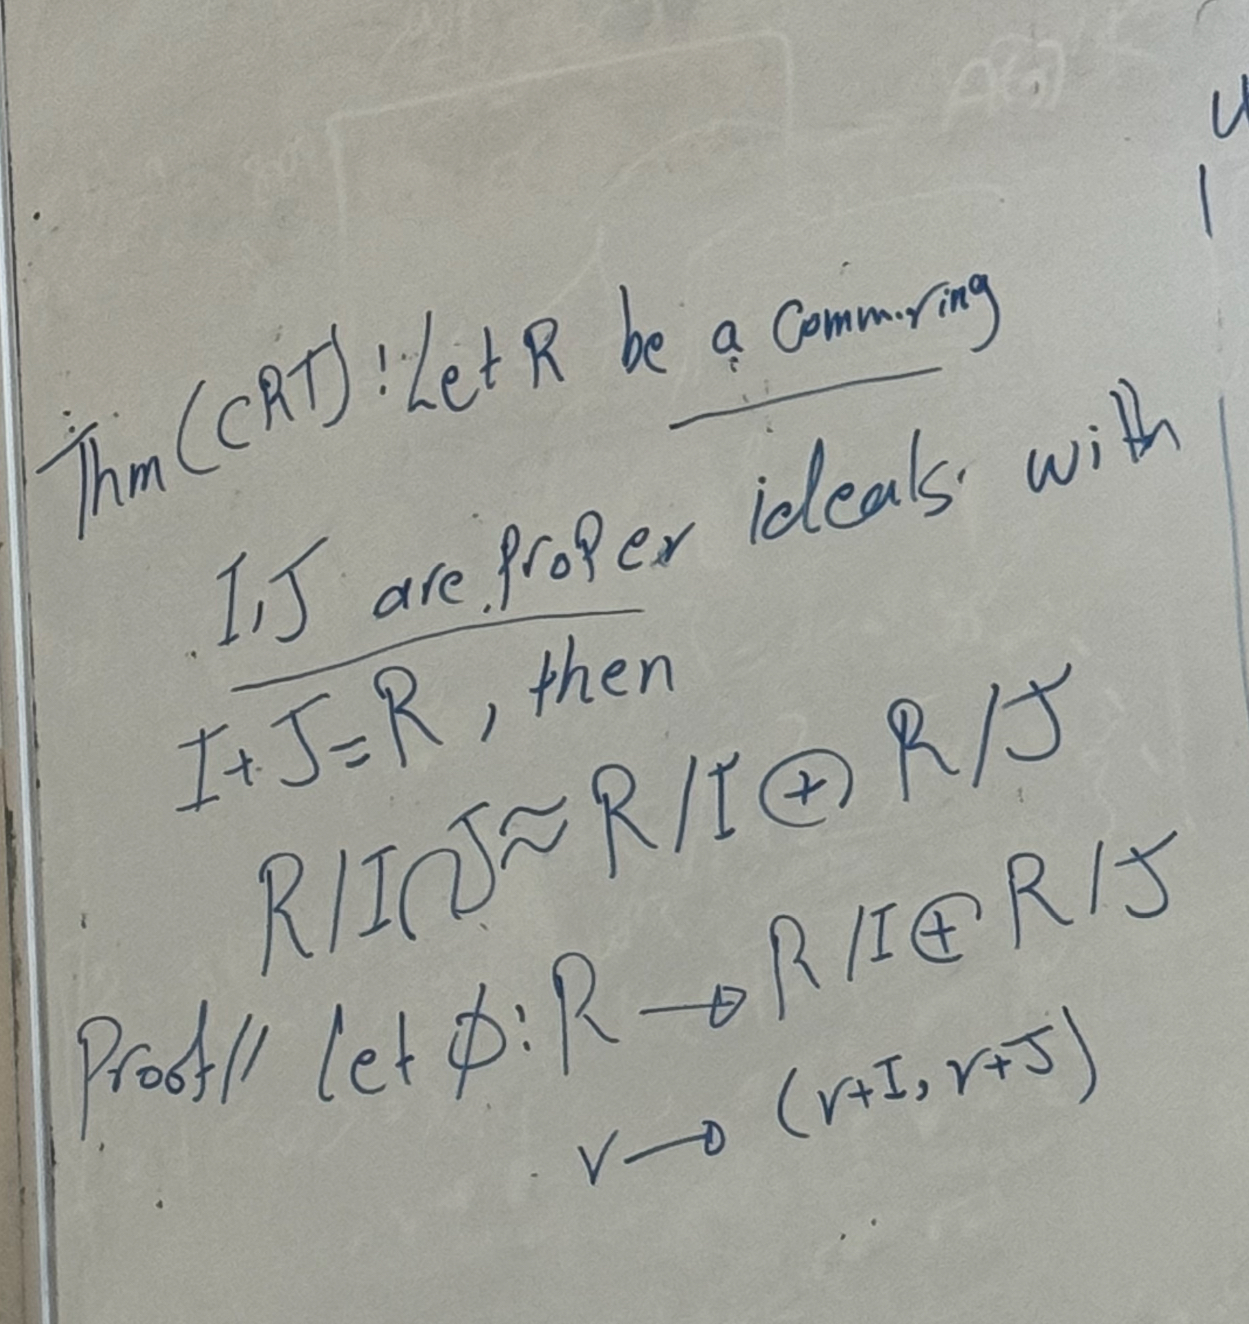 Thm (CRT): Let R be a Comm. ring
I, J are proper ideals with
I + J = R, then
R/I∩J ≈ R/I ⊕ R/J
Proof// let ϕ: R → R/I ⊕ R/J
r → (r+I, r+J)